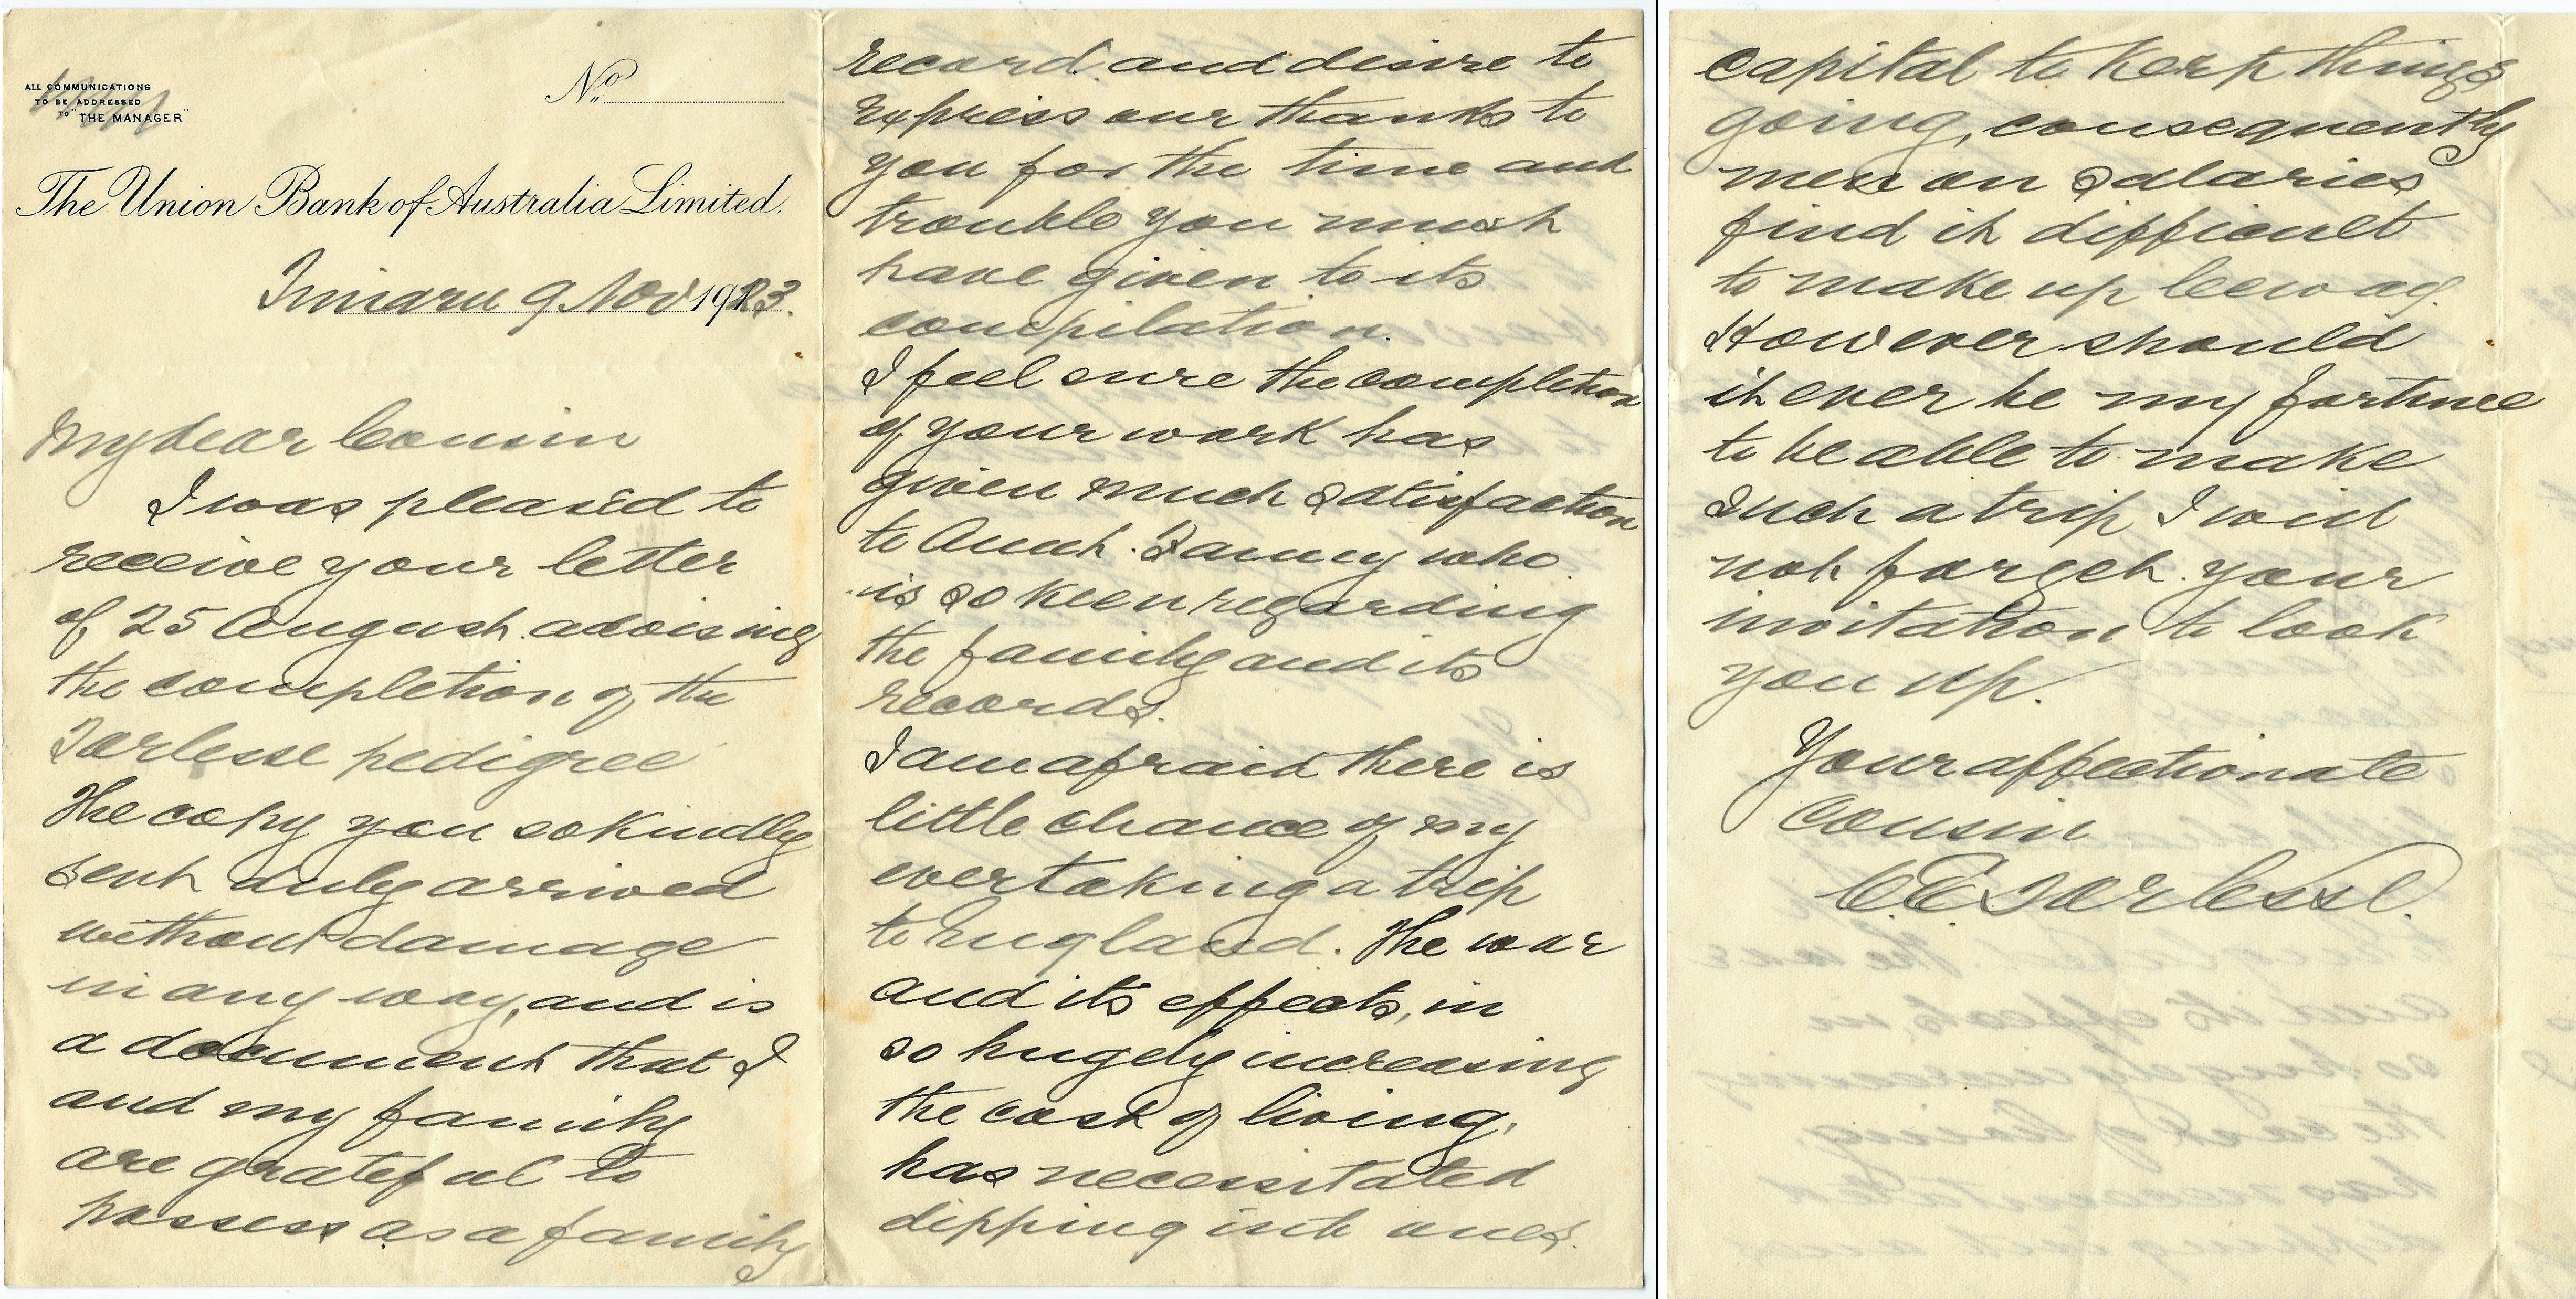 ALL COMMUNICATIONS
TO BE ADDRESSED
TO "THE MANAGER"
No.
The Union Bank of Australia Limited.
Timaru 9 Nov 1923.
My dear Cousin
I was pleased to
receive your letter
of 25 August advising
the completion of the
Torlesse pedigree
The copy you so kindly
sent duly arrived
without damage
in any way, and is
a document that I
and my family
are grateful to
possess as a family
record and desire to
express our thanks to
you for the time and
trouble you must
have given to its
compilation.
I feel sure the completion
of your work has
given much satisfaction
to Aunt Fanny who
is so keen regarding
the family and its
records.
I am afraid there is
little chance of my
ever taking a trip
to England. The war
and its effects, in
so hugely increasing
the cost of living,
has necessitated
dipping into ones
capital to keep things
going, consequently
men on salaries
find it difficult
to make up leeway.
However should
it ever be my fortune
to be able to make
such a trip I will
not forget your
invitation to look
you up.
Your affectionate
Cousin
C.E. Torlesse.